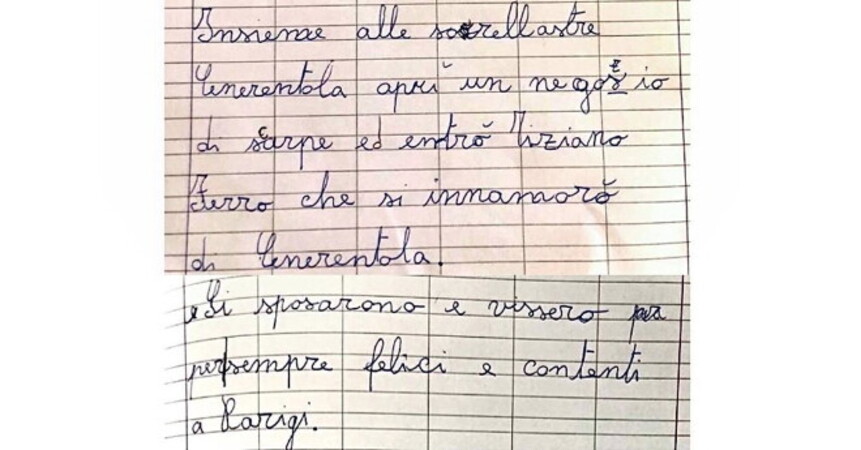 Insieme alle sorellastre
Cenerentola aprì un negozio
di scarpe ed entrò Tiziano
Ferro che si innamorò
di Cenerentola.
e Si sposarono e vissero per
per sempre felici e contenti
a Parigi.